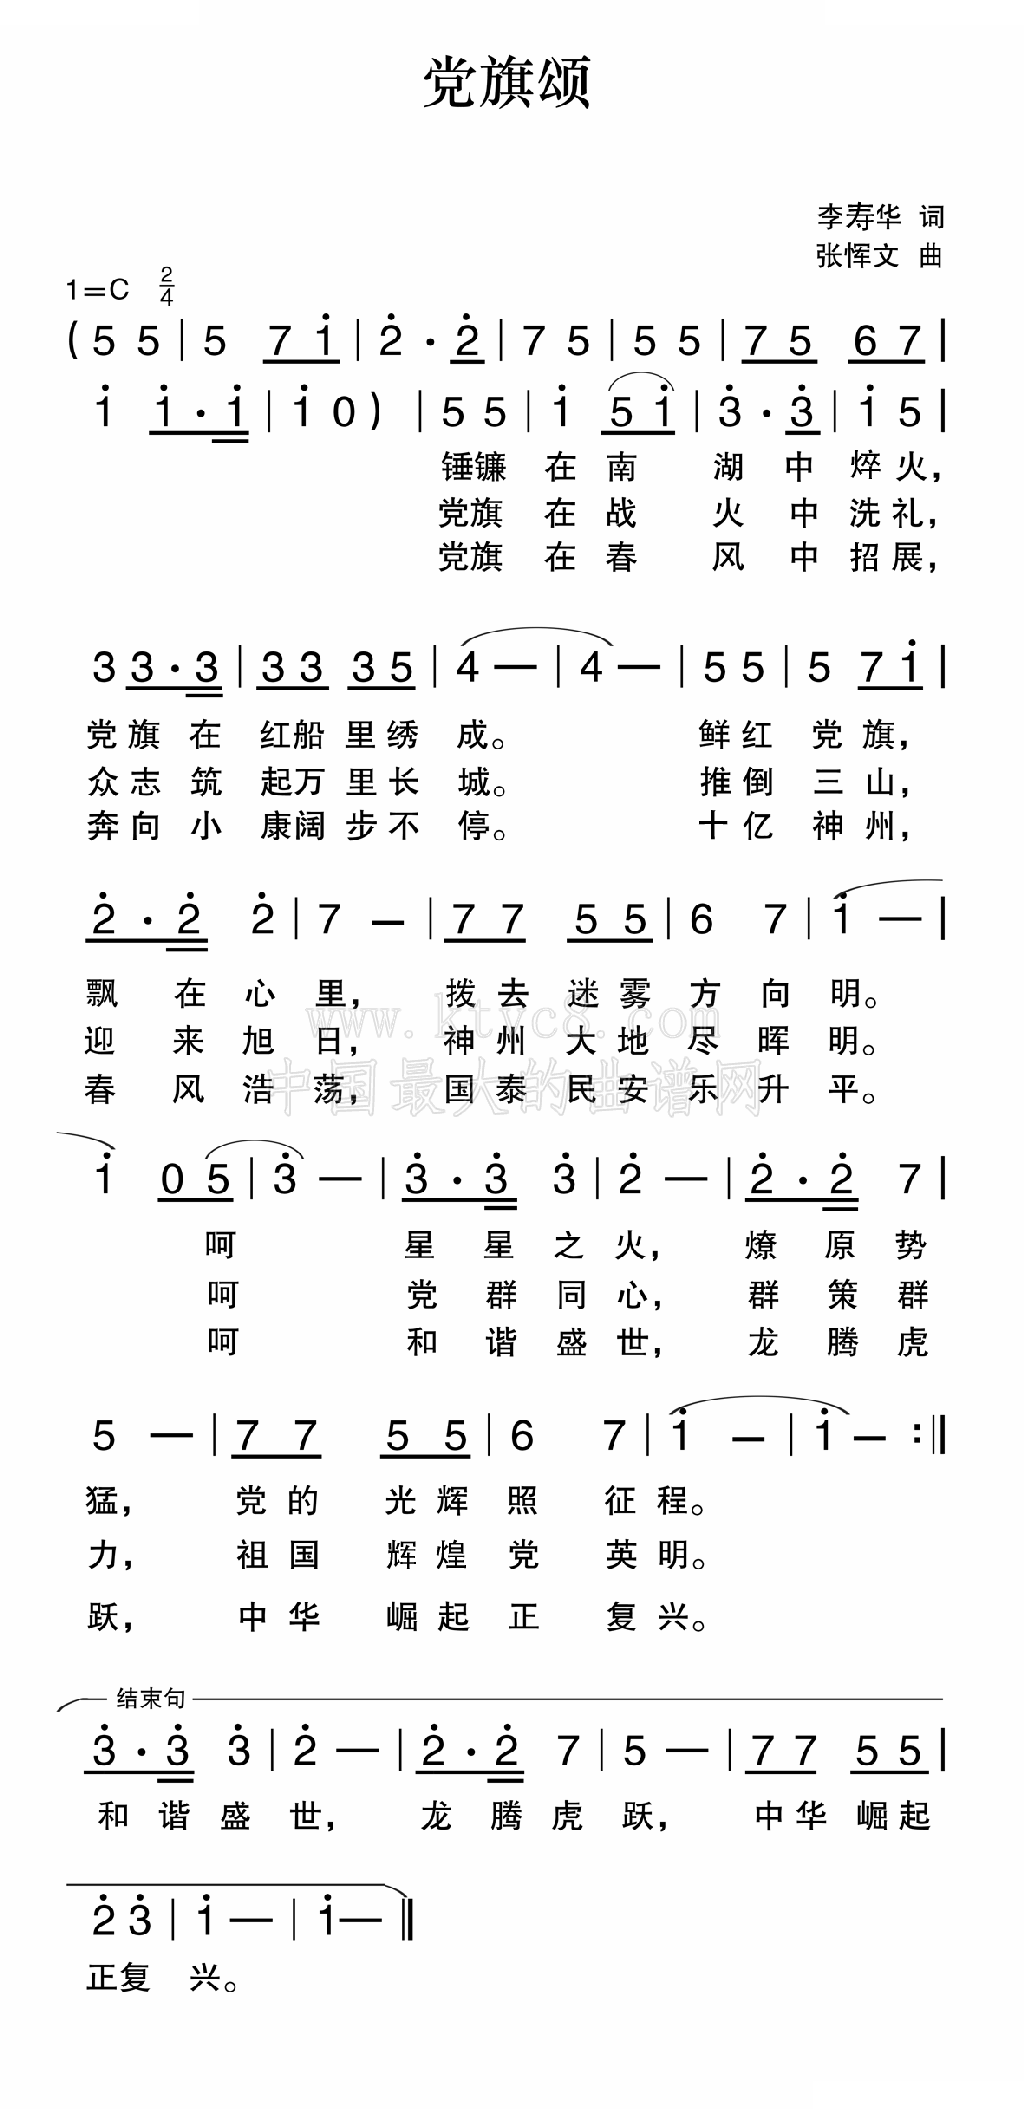 党旗颂
李寿华 词
张恽文 曲
1=C 2/4
( 5 5 | 5 7 1 | 2 · 2 | 7 5 | 5 5 | 7 5 6 7 |
1 1 · 1 | 1 0 ) | 5 5 | 1 5 1 | 3 · 3 | 1 5 |
锤镰 在 南 湖 中 焠 火，
党旗 在 战 火 中 洗 礼，
党旗 在 春 风 中 招 展，
3 3 · 3 | 3 3 3 5 | 4 — | 4 — | 5 5 | 5 7 1 |
党 旗 在 红船 里绣 成。 鲜 红 党 旗，
众 志 筑 起万 里长 城。 推 倒 三 山，
奔 向 小 康阔 步不 停。 十 亿 神 州，
2 · 2 2 | 7 — | 7 7 5 5 | 6 7 | 1 — |
飘 在 心 里， 拨 去 迷 雾 方 向 明。
迎 来 旭 日， 神 州 大 地 尽 晖 明。
春 风 浩 荡， 国 泰 民 安 乐 升 平。
www.ktyc8.com
中国最大的曲谱网
1 0 5 | 3 — | 3 · 3 3 | 2 — | 2 · 2 7 |
呵 星 星 之 火， 燎 原 势
呵 党 群 同 心， 群 策 群
呵 和 谐 盛 世， 龙 腾 虎
5 — | 7 7 5 5 | 6 7 | 1 — | 1 — :||
猛， 党 的 光 辉 照 征 程。
力， 祖 国 辉 煌 党 英 明。
跃， 中 华 崛 起 正 复 兴。
结束句
3 · 3 3 | 2 — | 2 · 2 7 | 5 — | 7 7 5 5 |
和 谐 盛 世， 龙 腾 虎 跃， 中 华 崛 起
2 3 | 1 — | 1 — ||
正复 兴。